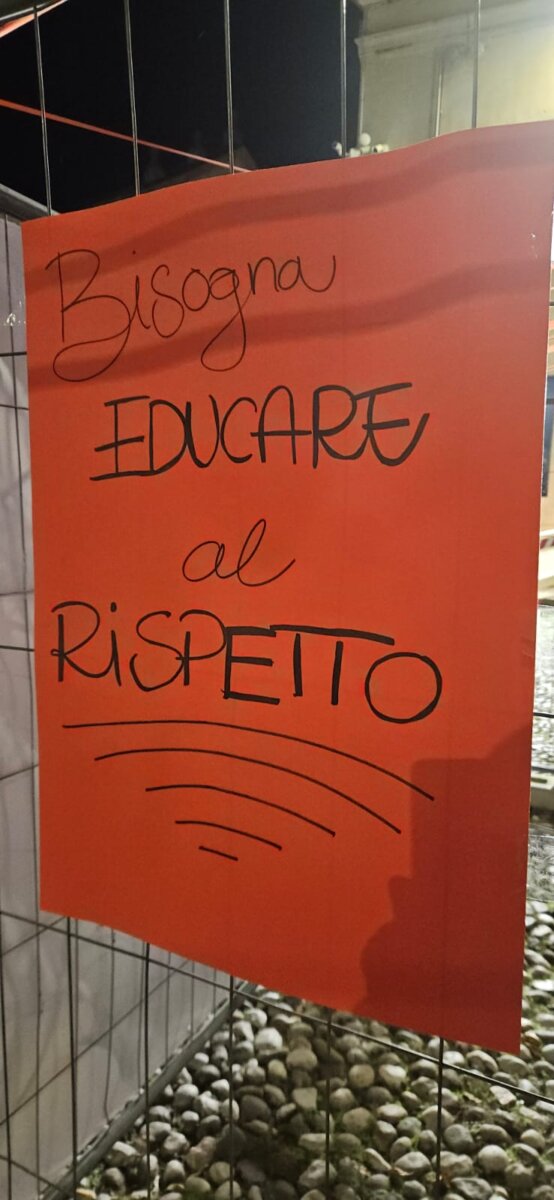 Bisogna
EDUCARE
al
RiSPETTO